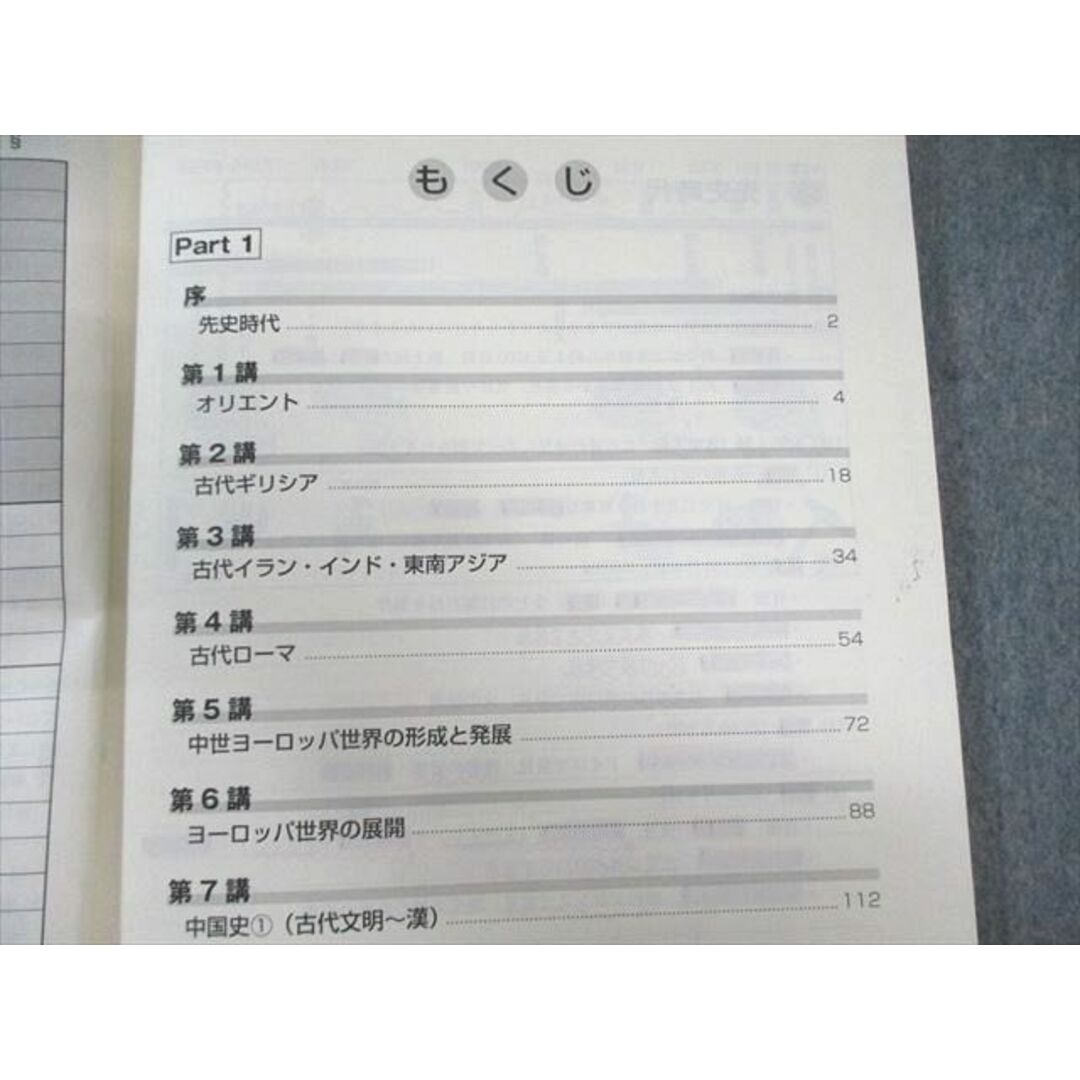 もくじ
Part 1
序
先史時代 2
第1講
オリエント 4
第2講
古代ギリシア 18
第3講
古代イラン・インド・東南アジア 34
第4講
古代ローマ 54
第5講
中世ヨーロッパ世界の形成と発展 72
第6講
ヨーロッパ世界の展開 88
第7講
中国史①（古代文明～漢） 112